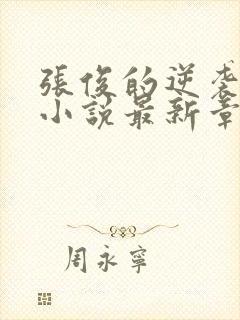 張俊的逆袭
小說最新章
周永寧